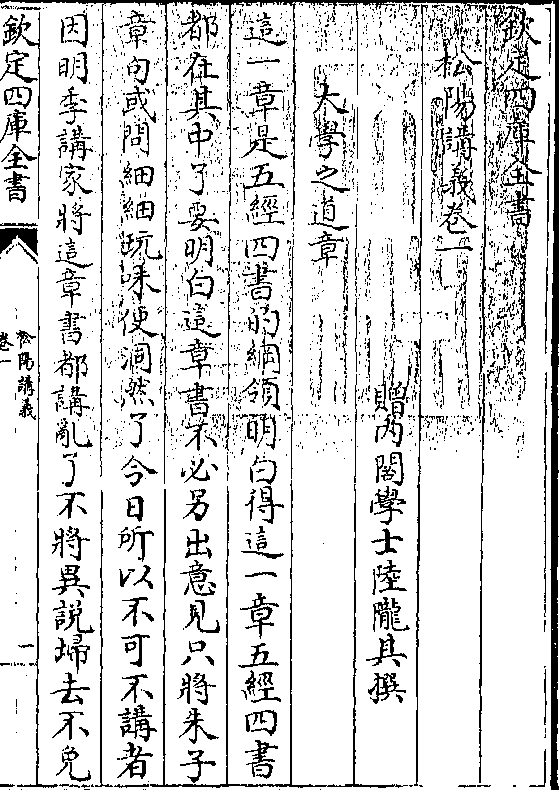 欽定四庫全書
松陽講義卷一
贈內閣學士陸隴其撰
大學之道章
這一章是五經四書的綱領明白得這一章五經四書
都在其中了要明白這章書不必另出意見只將朱子
章句或問細細玩味便洞然了今日所以不可不講者
因明季講家將這章書都講亂了不將異說埽去不免
欽定四庫全書
松陽講義
卷一
一